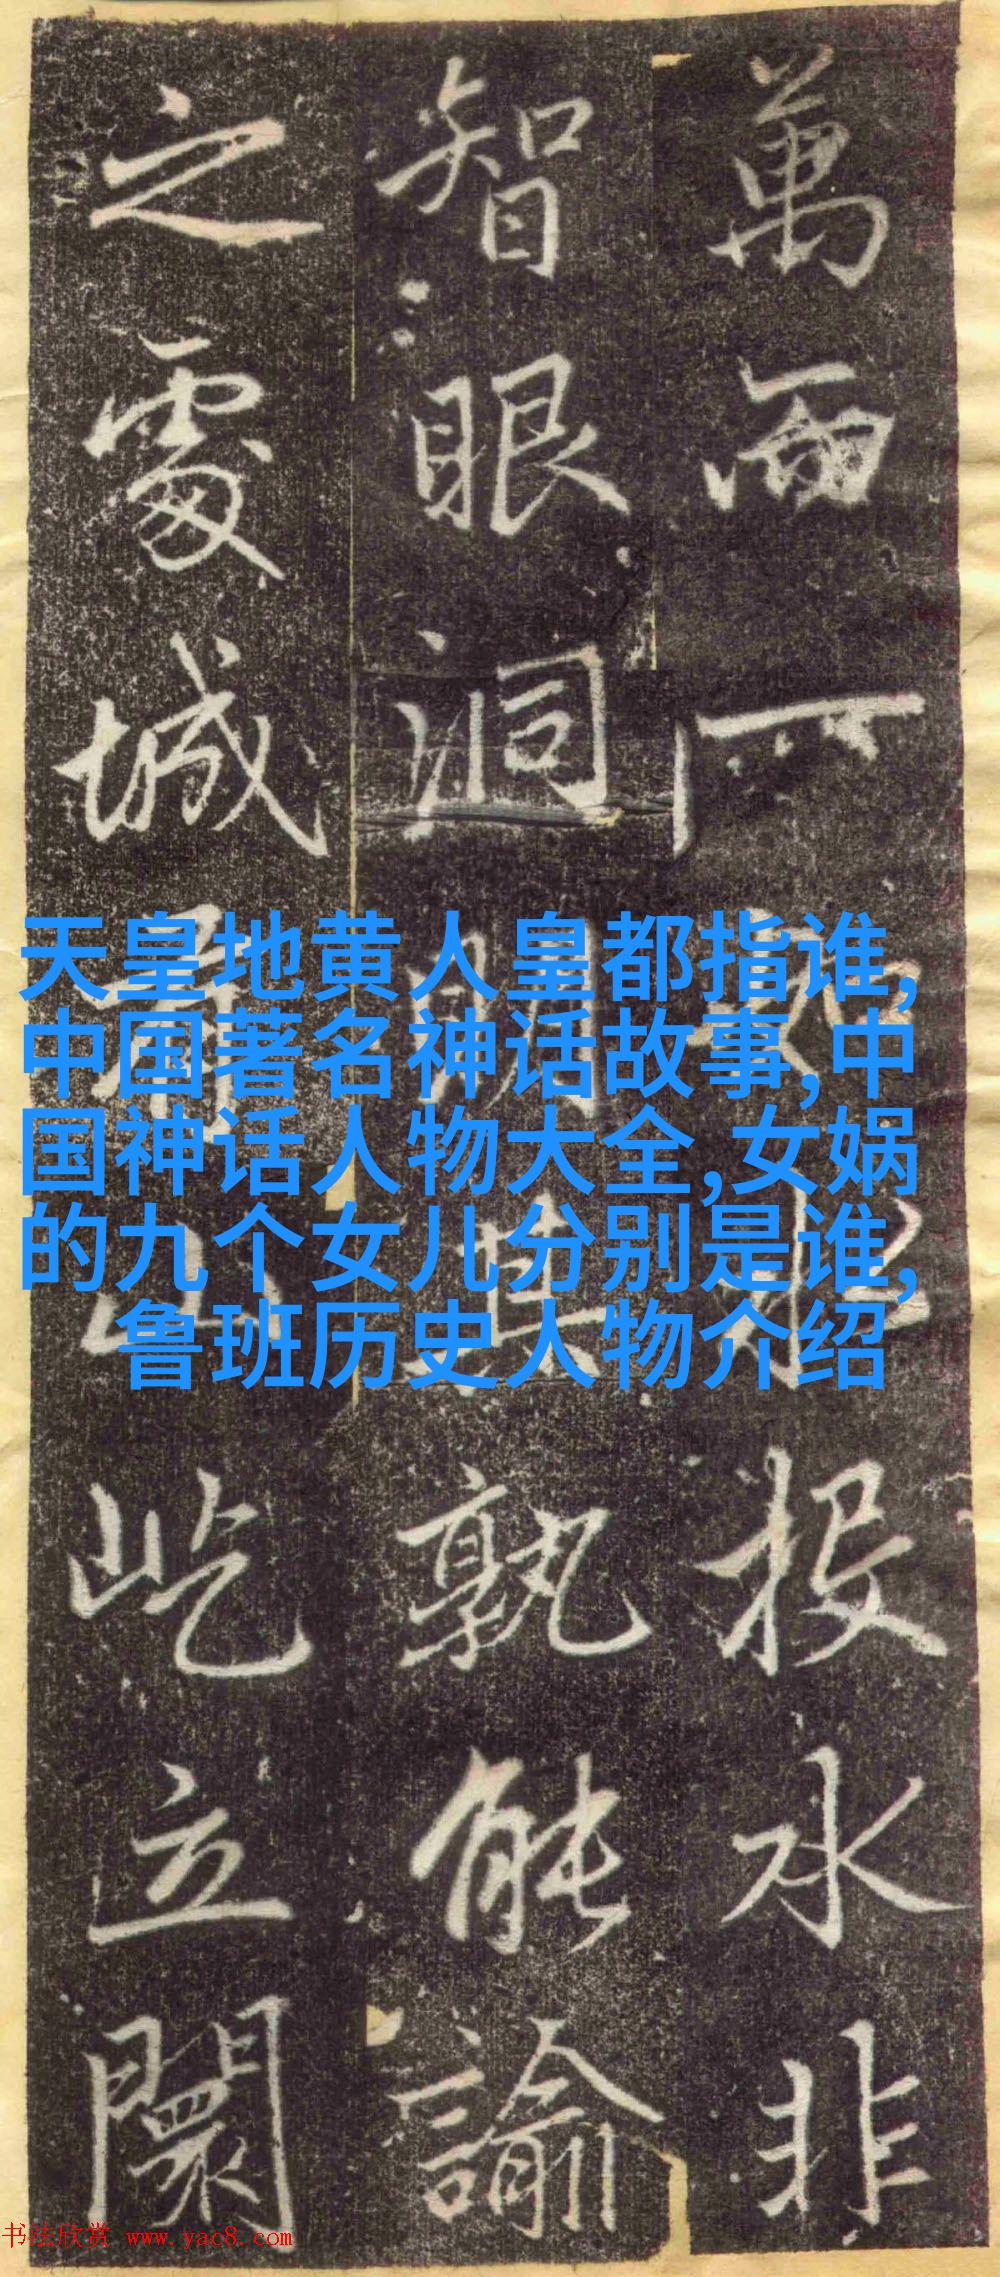 萬而一如水投水非
智眼洞明其孰能諭
之處城山屹立闤
天皇地黄人皇都指谁,
中国著名神话故事,中
国神话人物大全,女娲
的九个女儿分别是谁,
鲁班历史人物介绍
书法欣赏 www.yac8.com